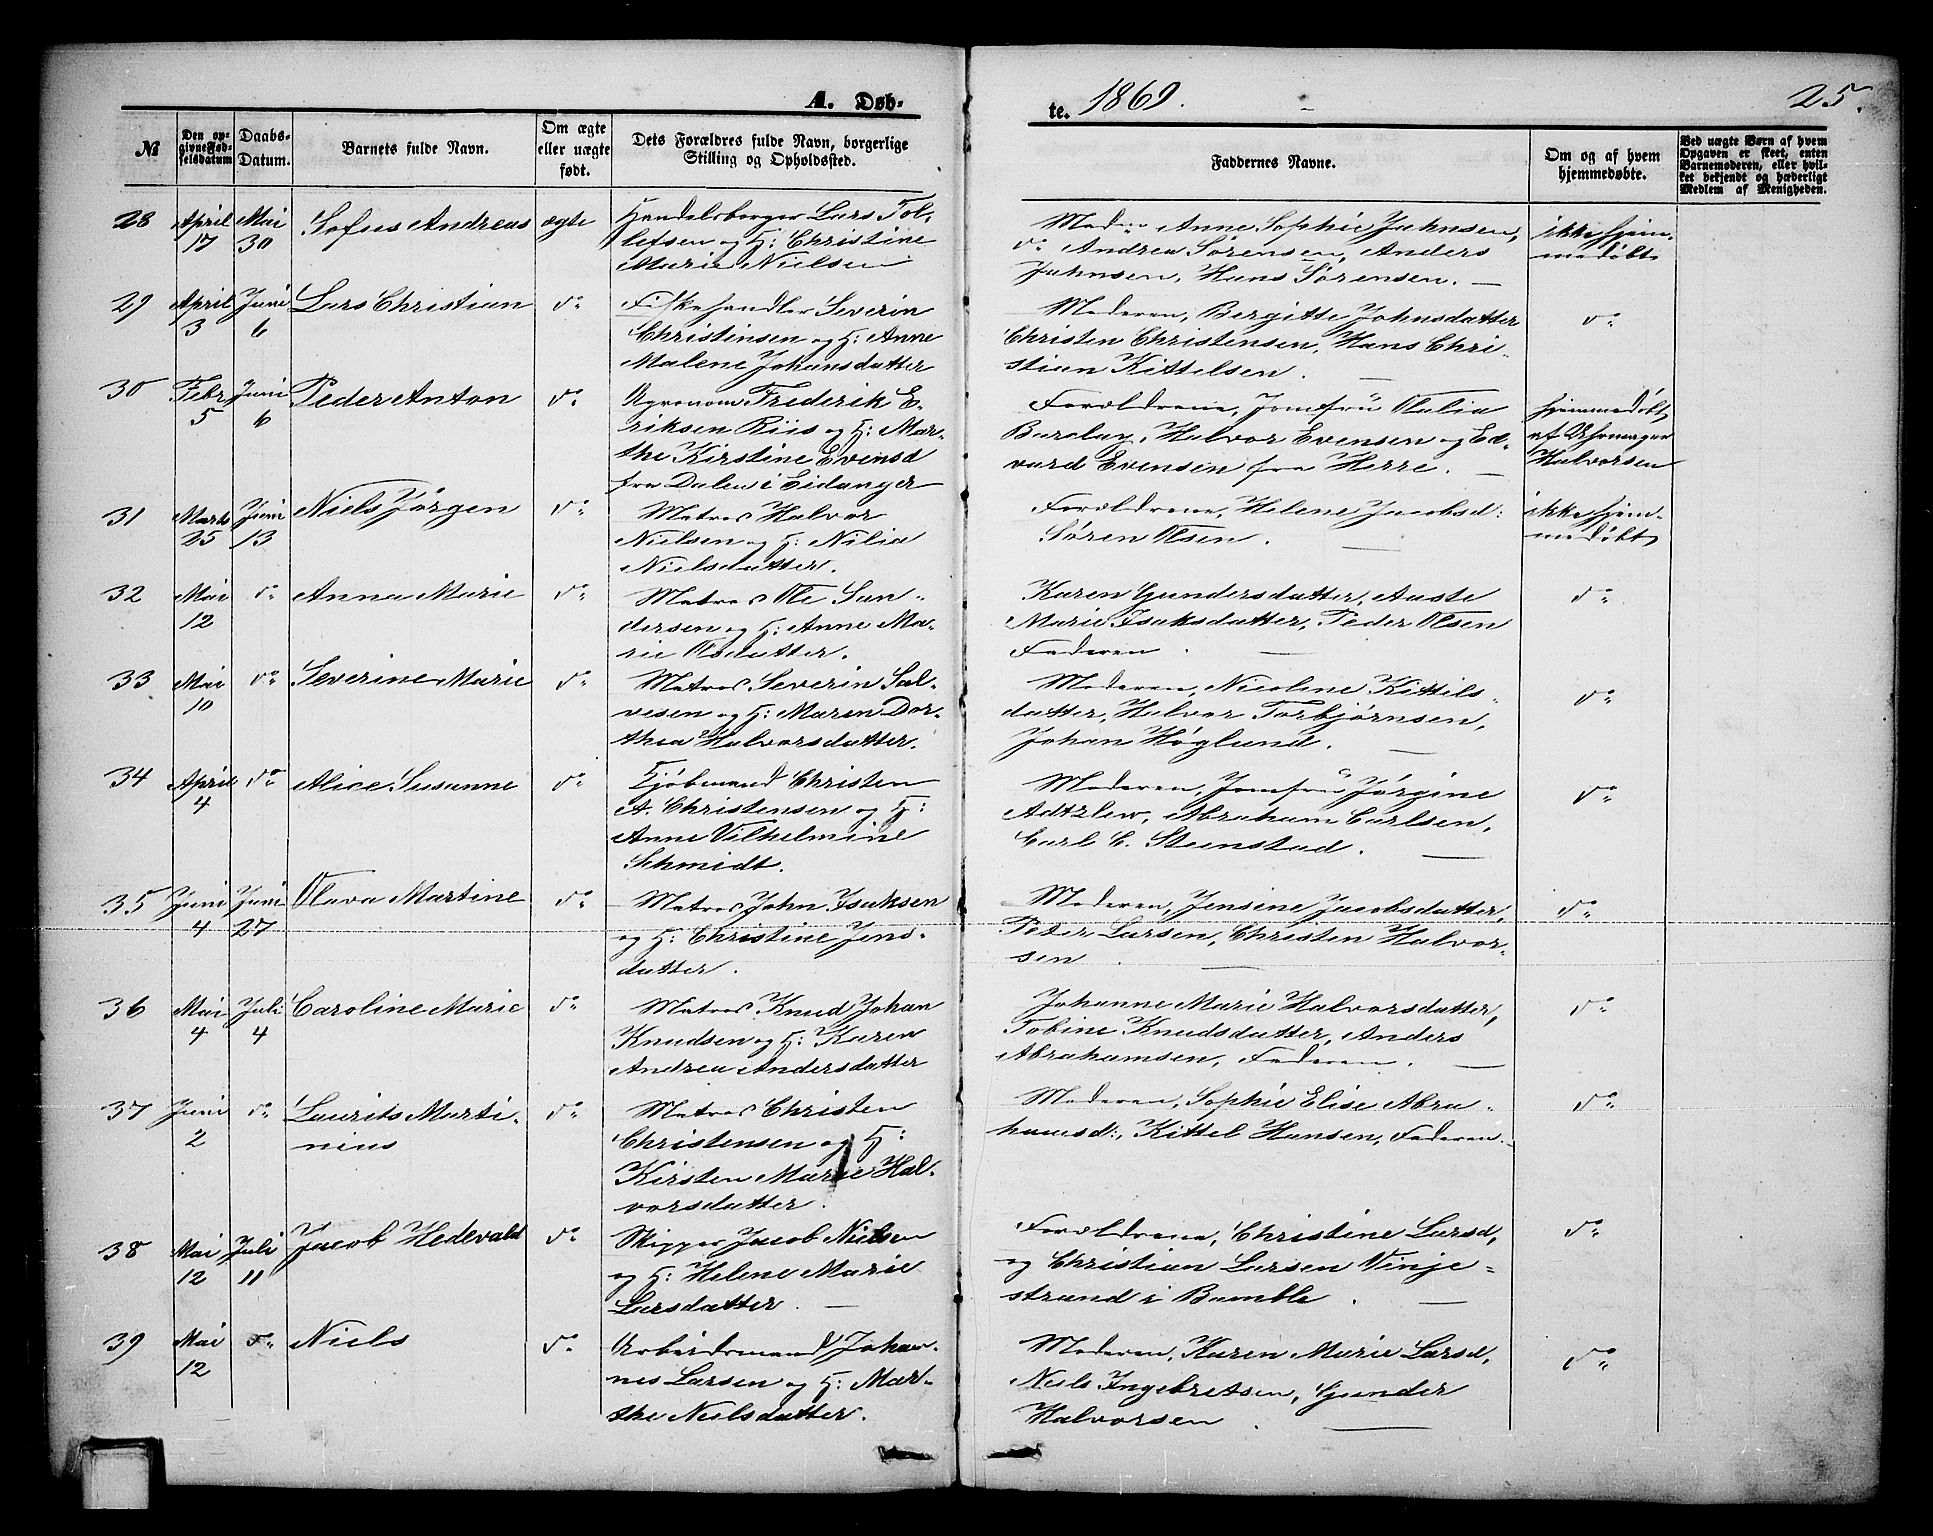 A. Døb-
te. 1869.
25.
№
Den op-
givne Fød-
selsdatum
Daabs-
Datum.
Barnets fulde Navn.
Om ægte
eller uægte
født.
Dets Forældres fulde Navn, borgerlige
Stilling og Opholdssted.
Faddernes Navne.
Om og af hvem
hjemmedøbte.
Ved uægte Børn af hvem
Opgaven er skeet, enten
Barnemoderen, eller hvil-
ket bekjendt og hæderligt
Medlem af Menigheden.
28
April
17
Mai
30
Sofus Andreas
ægte
Handelsborger Lars Tol-
lefsen og H: Christine
Marie Nielsen
Anne Sophie Jahnsen,
do Andrea Sørensen, Anders
Jahnsen, Hans Sørensen. —
ikke hjem-
medøbt
29
April
3
Juni
6
Lars Christian
do
Fiskehandler Severin
Christinsen og H: Anne
Malene Johansdatter
Moderen, Bergitte Johnsdatter
Christen Christensen, Hans Chri-
stian Kittelsen. —
do
30
Febr
5
Juni
6
Peder Anton
do
Agronom Frederik E-
riksen Riis og H: Mar-
the Kirstine Evensd
fra Dalen i Eidanger
Forældrene, Jomfru Olalia
Barclay, Halvor Evensen og Ed-
vard Evensen fra Herre. —
hjemmedøbt
af Uhrmager
Halvorsen
31
Marts
25
Juni
13
Niels Jørgen
do
Matros Halvor
Nielsen og H: Nilia
Nielsdatter.
Forældrene, Helene Jacobsd:
Søren Olsen. —
ikke hjem-
medøbt
32
Mai
12
do
Anna Marie
do
Matros Ole Gun-
dersen og H: Anne Ma-
rie Olsdatter.
Karen Gundersdatter, Aaste
Marie Isaksdatter, Peder Olsen
Faderen. —
do
33
Mai
10
do
Severine Marie
do
Matros Severin Sal-
vesen og H: Maren Dor-
thea Halvorsdatter.
Moderen, Nicoline Kittils-
datter, Halvor Torbjørnsen,
Johan Høglund. —
do
34
April
4
do
Alice Susanne
do
Kjøbmand Christen
A. Christensen og H:
Anne Vilhelmine
Schmidt.
Moderen, Jomfru Jørgine
Adtzlew, Abraham Carlsen,
Carl C. Steenstad. —
do
35
Juni
4
Juni
27
Olava Martine
do
Matros John Isaksen
og H: Christine Jens-
datter.
Moderen, Jensine Jacobsdatter,
Peder Larsen, Christen Halvor-
sen. —
do
36
Mai
4
Juli
4
Caroline Marie
do
Matros Knud Johan
Knudsen og H: Karen
Andrea Andersdatter
Johanne Marie Halvorsdatter,
Tobine Knudsdatter, Anders
Abrahamsen, Faderen. —
do
37
Juni
2
do
Laurits Marti-
nius
do
Matros Christen
Christensen og H:
Kirsten Marie Hal-
vorsdatter.
Moderen, Sophie Elise Abra-
hamsd:, Kittel Hansen, Faderen. —
do
38
Mai
12
Juli
11
Jacob Hedevald
do
Skipper Jacob Nielsen
og H: Helene Marie
Larsdatter. —
Forældrene, Christine Larsd,
og Christian Larsen Vinje-
strand i Bamble. —
do
39
Mai
12
do
Niels
do
Arbeidsmand Johan-
nes Larsen og H: Mar-
the Nielsdatter.
Moderen, Karen Marie Larsd,
Niels Ingebretsen, Gunder
Halvorsen. —
do